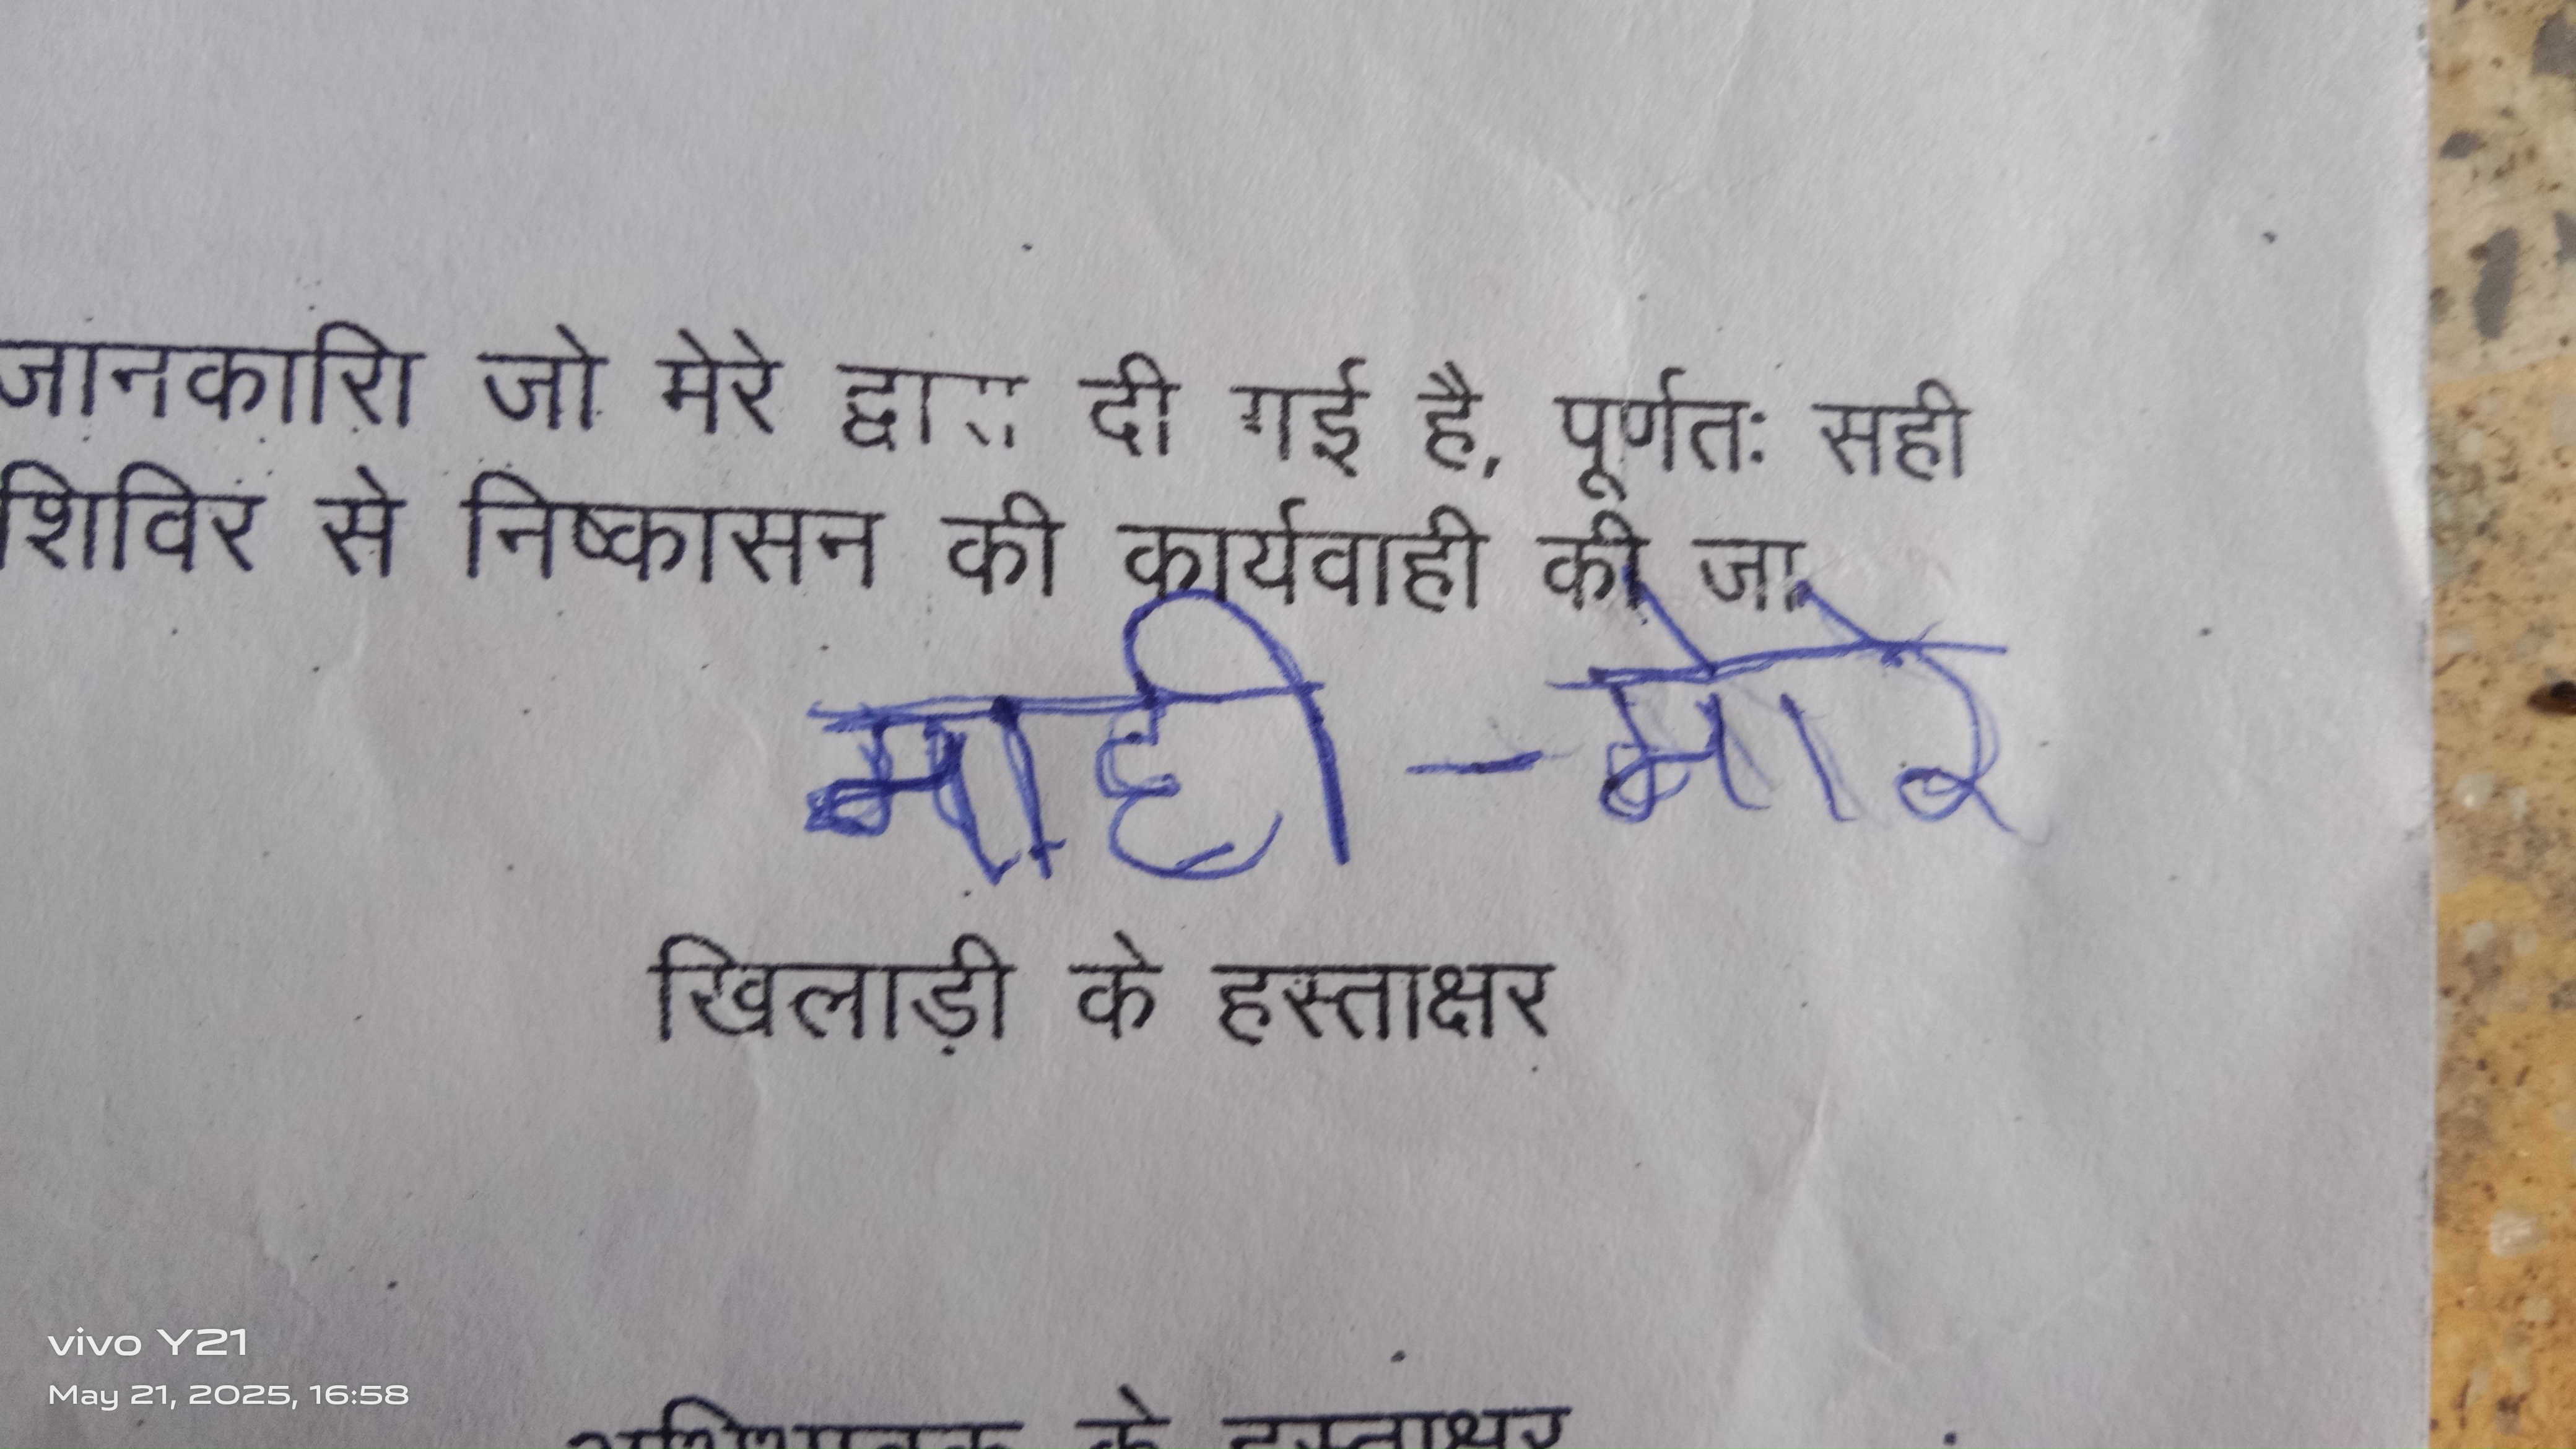 जानकारिा जो मेरे द्वारा दी गई है, पूर्णतः सही
शिविर से निष्कासन की कार्यवाही की जा
माही - मोरे
खिलाड़ी के हस्ताक्षर
अभिभावक के हस्ताक्षर
vivo Y21
May 21, 2025, 16:58